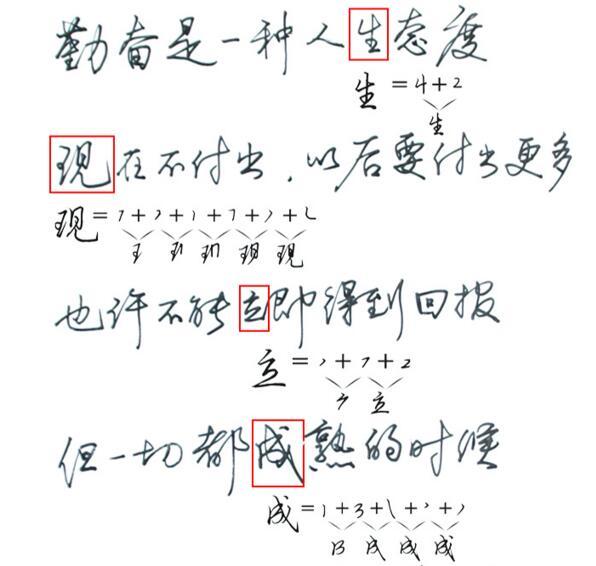 勤奋是一种人生态度
生 = 4 + 2
生
现在不付出，以后要付出更多
现 = 7 + ㇀ + 1 + 7 + ノ + 乚
王 现
也许不能立即得到回报
立 = 丶 + 7 + 2
立
但一切都成熟的时候
成 = 1 + 3 + ㇂ + 丶 + ノ
成 成